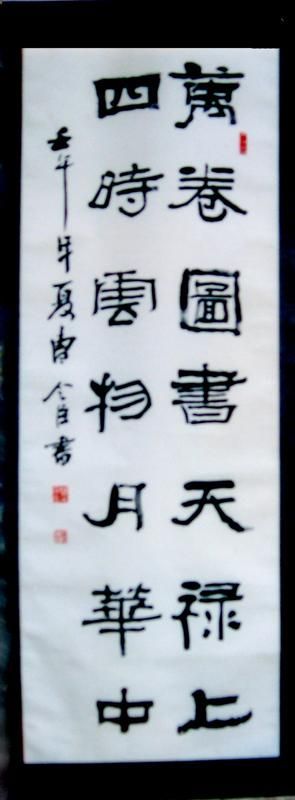 萬卷圖書天禄上
四時雲物月華中
壬午年夏
書